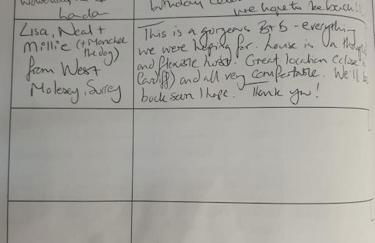 London
we hope to be back!!
Lisa, Neal +
Millie (+
the dog)
from West
Molesey, Surrey
This is a gorgeous B+B - everything
we were hoping for. Louise is a
and flexible host. Great location (close to
Cardiff) and all very comfortable. We'll be
back soon I hope. Thank you!